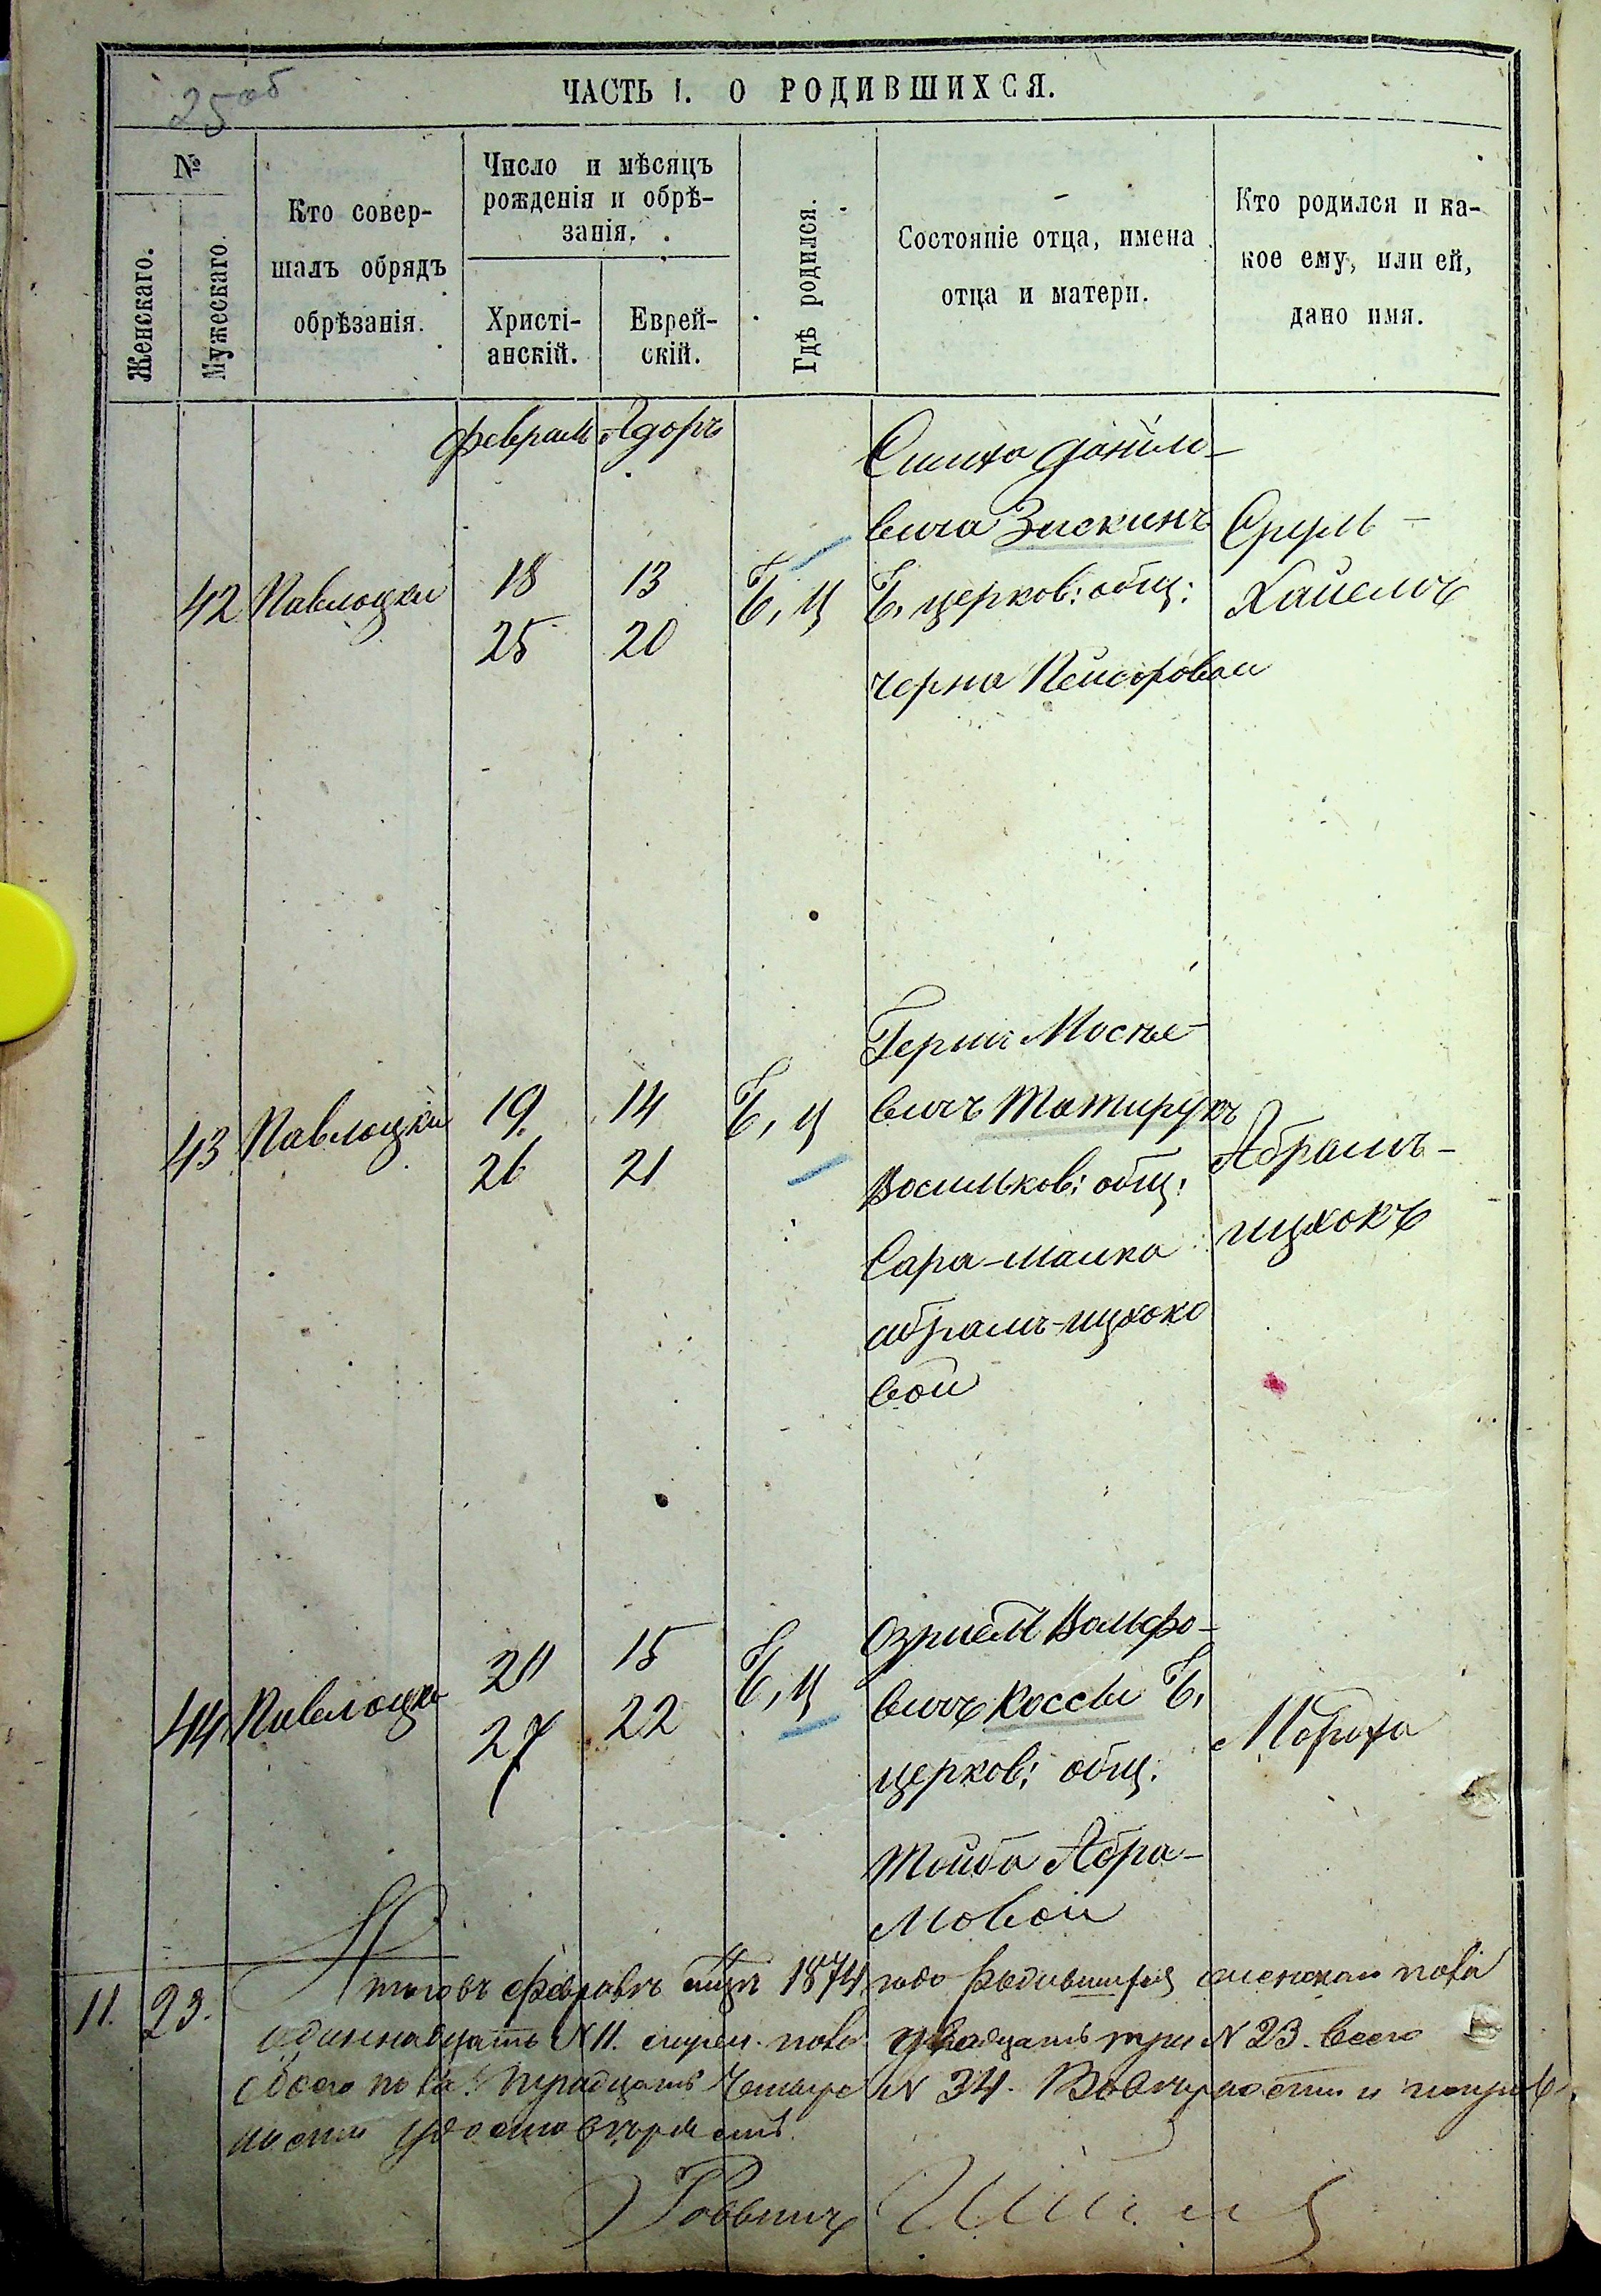 25 об
ЧАСТЬ I. О РОДИВШИХСЯ.
№
Женскаго.
Мужескаго
Кто совер-
шалъ обрядъ
обрѣзанія.
Число и мѣсяцъ
рожденія и обрѣ-
занія.
Христі-
анскій.
Еврей-
скій.
Гдѣ родился.
Состояніе отца, имена
отца и матери.
Кто родился и ка-
кое ему, или ей,
дано имя.
Февраль Адоръ
42 Павлоцки
18 13
25 20
Б, Ц
Симха Данил-
вича Зискинъ
Б, церков: общ:
Черна Пейсоровои
Сруль-
Хаиемъ
43 Павлоцки
19 14
26 21
Б, Ц
Герш Мосье-
вичъ Татирукъ
Васильков: общ:
Сара-малка
абрамъ-ицхоко
вой
Абрамъ-
ицхокъ
44 Павлоцки
20 15
27 22
Б, Ц
Озриель Вольфо-
вичъ Коссы Б,
церков: общ:
Тойба Абра-
мовой
11. 23.
Итого въ Февралѣ 1874 года родившихся женскаго пола
одиннадцать N 11. мужеск. пола двадцать три N 23. всего
обоего пола тридцать четыре N 34. Въ вѣрности и
удостовѣряемъ.
Раввинъ